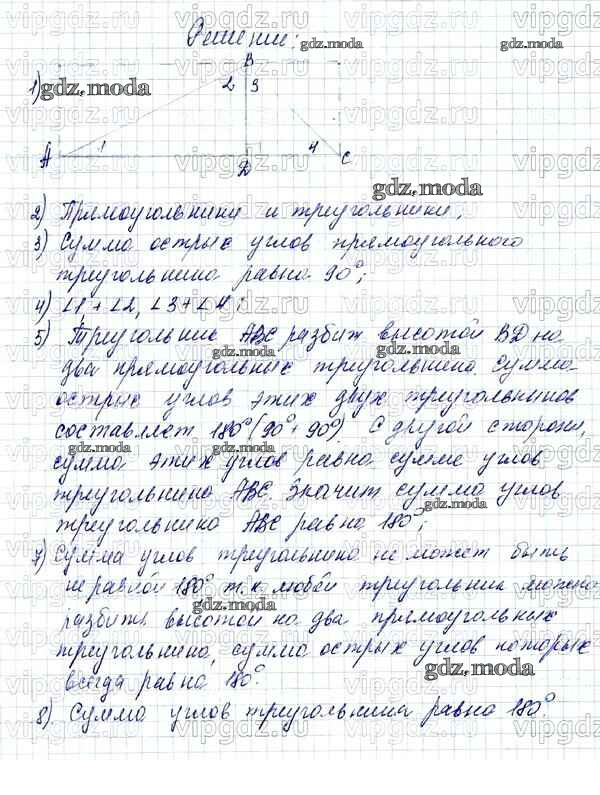 Решение:
1)
B
2 3
A 1 Д 4 C
2) Прямоугольники и треугольники;
3) Сумма острых углов прямоугольного
треугольника равна 90°;
4) ∠1+∠2, ∠3+∠4;
5) Треугольник ABC разбит высотой BД на
два прямоугольных треугольника. Сумма
острых углов этих двух треугольников
составляет 180° (90°+90°). С другой стороны,
сумма этих углов равна сумме углов
треугольника ABC. Значит сумма углов
треугольника ABC равна 180°;
7) Сумма углов треугольника не может быть
не равной 180° т.к любой треугольник можно
разбить высотой на два прямоугольных
треугольника, сумма острых углов которых
всегда равна 180°.
8) Сумма углов треугольника равна 180°.
gdz.moda
vipgdz.ru